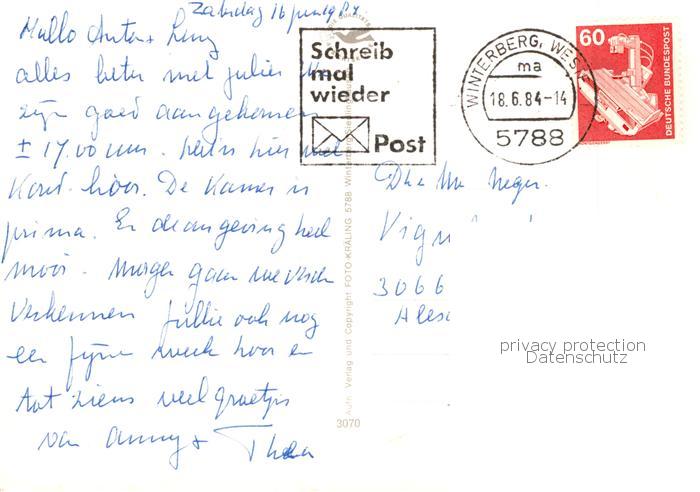 Zaterdag 16 juni 1984
Hallo Anton + Leny
alles beter met jullie. We
zijn goed aangekomen
± 17.00 uur. hier is het wel
Koud hoor. De Kamer is
prima. En de omgeving heel
mooi. Morgen gaan we
verkennen Jullie ook nog
een fijne week hoor en
tot ziens veel groetjes
van Anny + Thea
Schreib
mal
wieder
Post
WINTERBERG, WEST
ma
18.6.84-14
5788
60
DEUTSCHE BUNDESPOST
Vign
3066
privacy protection
Datenschutz
Aufn. Verlag und Copyright FOTO-KRALING 5788 Winterberg
3070